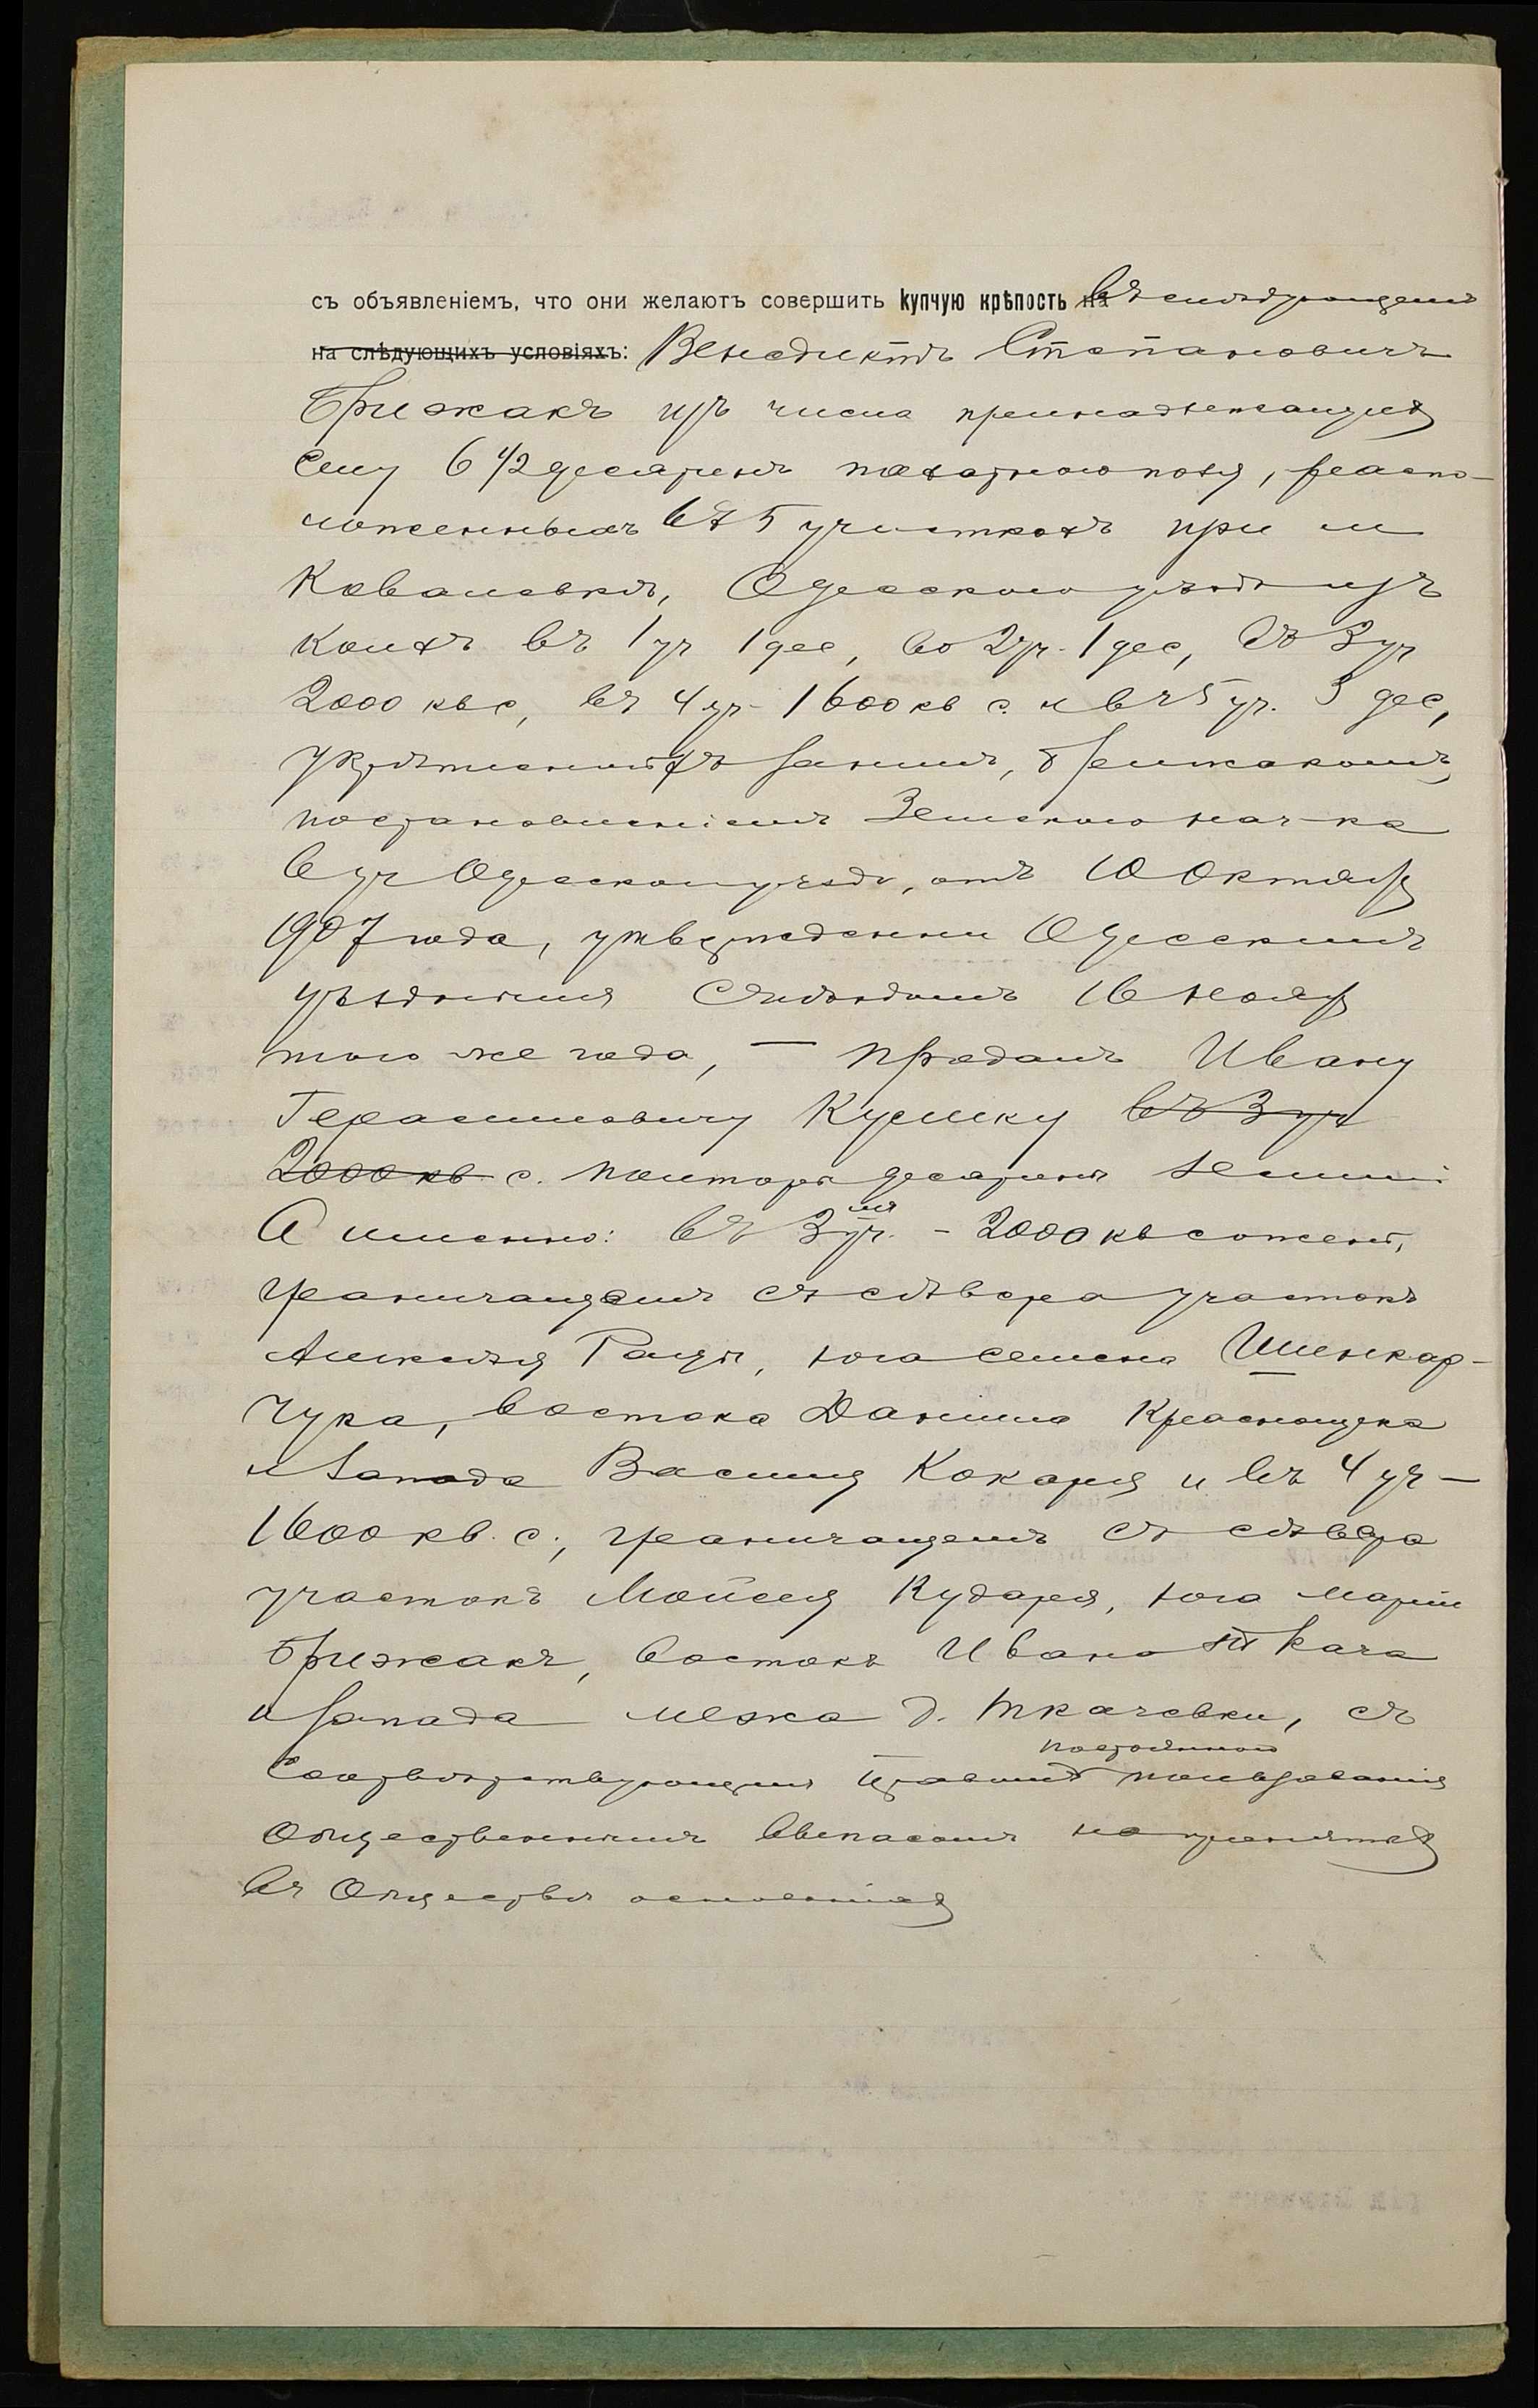 съ объявленіемъ, что они желаютъ совершить купчую крѣпость на въ слѣдующемъ
на слѣдующихъ условіяхъ: Венедиктъ Степановичъ
Брижакъ изъ числа принадлежащихъ
ему 6 1/2 десятинъ пахатного поля, распо-
ложенныхъ въ 5 участкахъ при м
Ковалевкѣ, Одесского уѣзда изъ
коихъ въ 1 уч 1 дес, во 2 уч - 1 дес, въ 3 уч
2000 кв с, въ 4 уч - 1600 кв с. и въ 5 уч. 3 дес,
укрѣпленныхъ за нимъ, Брижакомъ,
постановленіемъ Земского нач-ка
6 уч Одесского уѣзда, отъ 10 Октября
1907 года, утвержденнымъ Одесскимъ
уѣзднымъ Съѣздомъ 16 Ноября
того же года, — продалъ Ивану
Герасимовичу Кулику въ 3 уч
2000 кв с. полторы десятины земли
А именно: въ 3мъ уч. - 2000 кв сожень,
граничащемъ съ сѣвера участокъ
Алексѣя Раци, юга Семена Шинкар-
чука, востока Данила Краснощека
и запада Василія Кокаря и въ 4 уч —
1600 кв. с., граничащемъ съ сѣвера
участокъ Мойсея Кударя, юга Маріи
Брижакъ, востокъ Ивана Ткача
и запада межа д. Ткачевки, съ
постояннаго
соотвѣтствующимъ правомъ пользованія
общественнымъ выпасомъ на принятыхъ
въ Обществѣ основаніяхъ